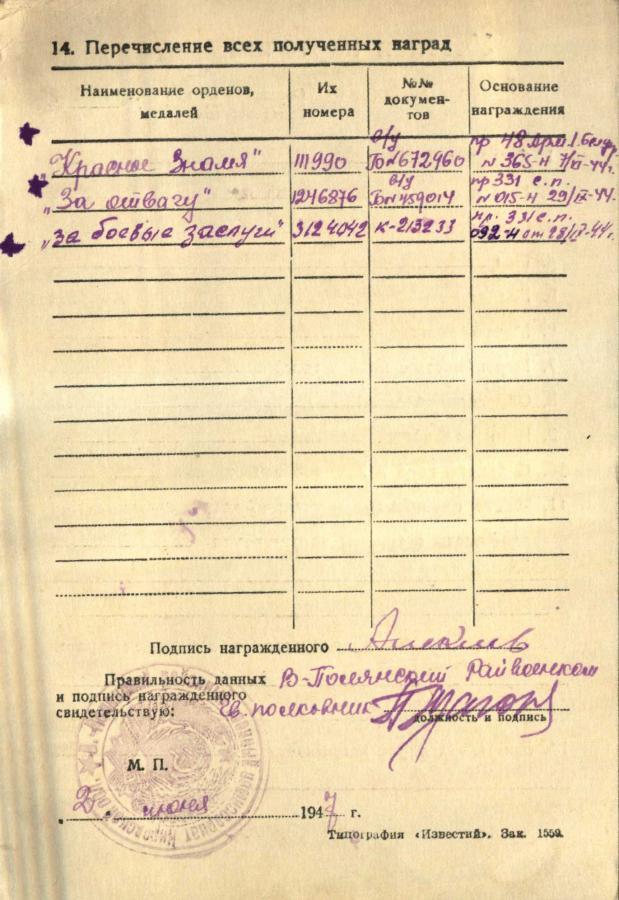 14. Перечисление всех полученных наград
Наименование орденов, медалей
Их номера
№№ докумен-
тов
Основание награждения
„Красное Знамя" 111990 в/у Б № 672960 пр 48 Арм.
№ 365-н 7/
„За отвагу" 1246876 в/у Б № 459014 пр 331 с.п.
№ 015-н 29/
„За боевые заслуги" 3124042 К-213233 пр. 331 с.п.
092-н от 28/
Подпись награжденного
Правильность данных В-Полянский Райвоенком
и подпись награжденного
свидетельствую: Гв. полковник
должность и подпись
М. П.
2 июня 1947 г.
Типография «Известий». Зак. 1559.